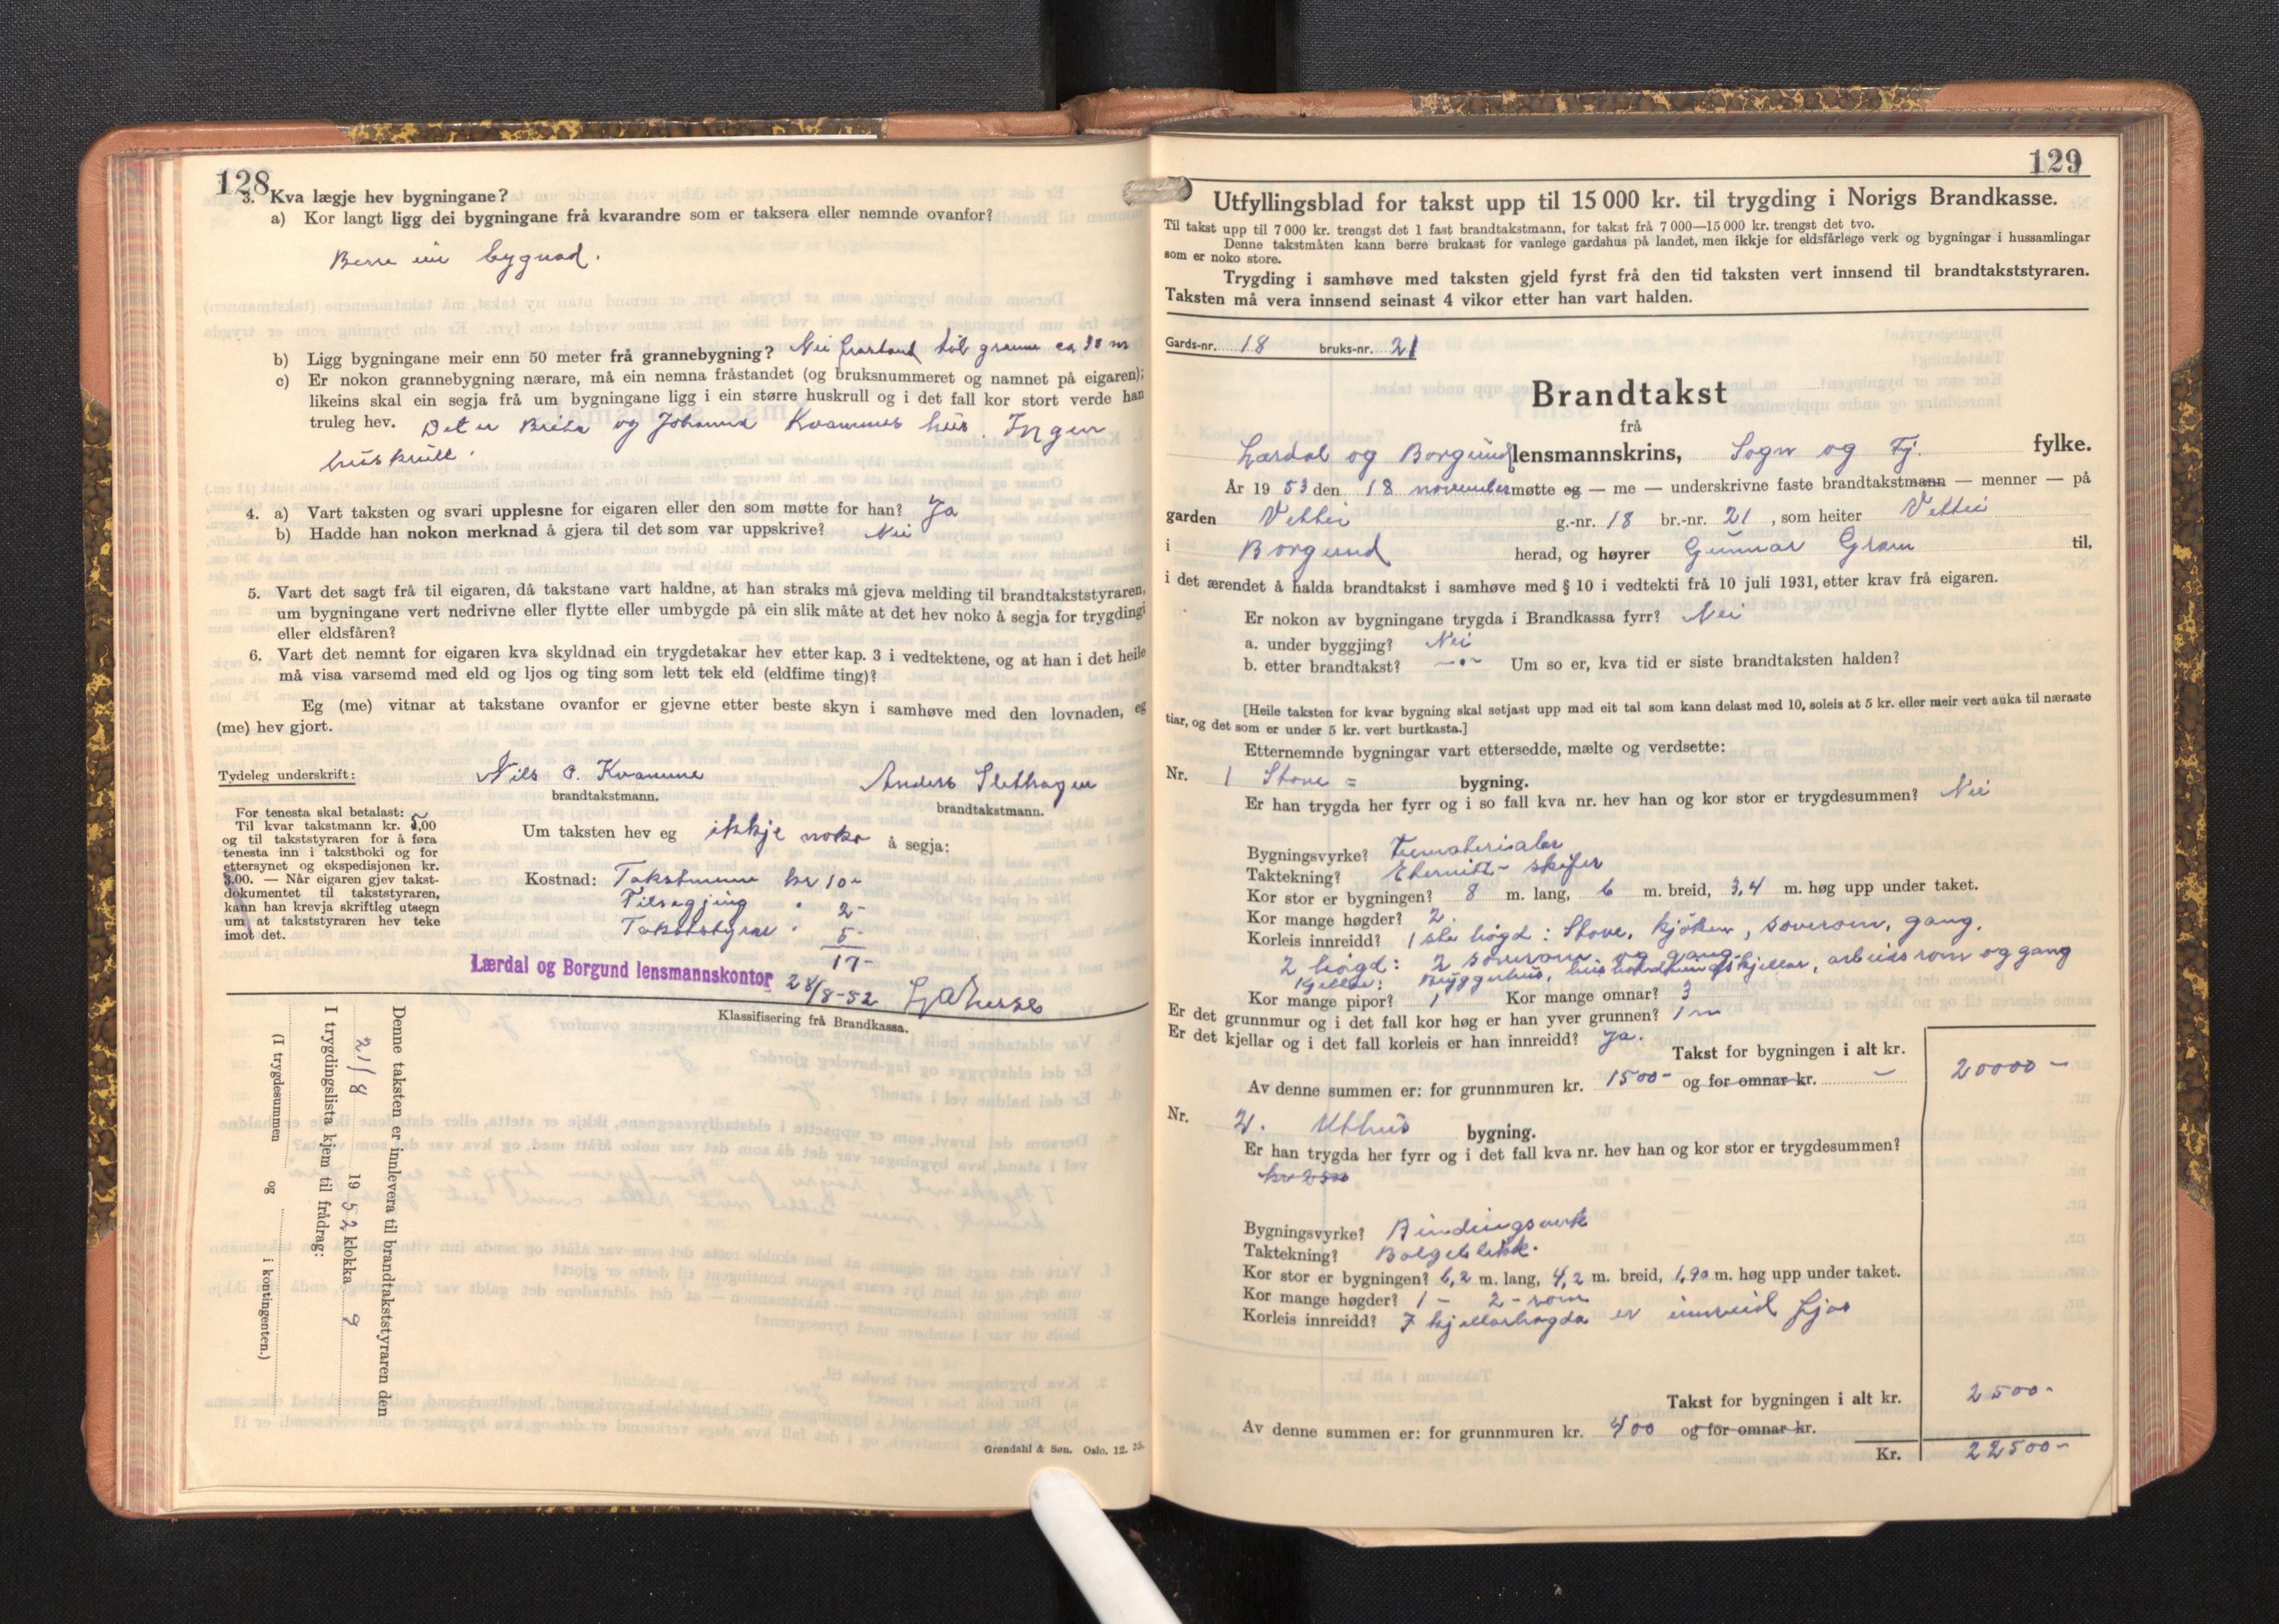 128
3. Kva lægje hev bygningane?
a) Kor langt ligg dei bygningane frå kvarandre som er taksera eller nemnde ovanfor?
Berre ein bygnad.
b) Ligg bygningane meir enn 50 meter frå grannebygning? Nei frastand til granne ca 30 m
c) Er nokon grannebygning nærare, må ein nemna fråstandet (og bruksnummeret og namnet på eigaren);
likeins skal ein segja frå um bygningane ligg i ein større huskrull og i det fall kor stort verde han
truleg hev. Det er Brita og Johanna Kvammes hus. Ingen
huskrull.
4. a) Vart taksten og svari upplesne for eigaren eller den som møtte for han? Ja
b) Hadde han nokon merknad å gjera til det som var uppskrive? Nei
5. Vart det sagt frå til eigaren, då takstane vart haldne, at han straks må gjeva melding til brandtakststyraren,
um bygningane vert nedrivne eller flytte eller umbygde på ein slik måte at det hev noko å segja for trygdingi
eller eldsfåren?
6. Vart det nemnt for eigaren kva skyldnad ein trygdetakar hev etter kap. 3 i vedtektene, og at han i det heile
må visa varsemd med eld og ljos og ting som lett tek eld (eldfime ting)?
Eg (me) vitnar at takstane ovanfor er gjevne etter beste skyn i samhøve med den lovnaden, eg
(me) hev gjort.
Tydeleg underskrift: Nils O. Kvamme Anders Slethagen
brandtakstmann. brandtakstmann.
For tenesta skal betalast:
Til kvar takstmann kr. 5,00
og til takststyraren for å føra
tenesta inn i takstboki og for
ettersynet og ekspedisjonen kr.
3.00. — Når eigaren gjev takst-
dokumentet til takststyraren,
kann han krevja skriftleg utsegn
um at takststyraren hev teke
imot det.
Um taksten hev eg ikkje noko å segja:
Kostnad: Takstmenn kr 10-
Tilsegjing " 2-
Takststyrar " 5-
17-
Lærdal og Borgund lensmannskontor 28/8-52
Klassifisering frå Brandkassa.
Denne taksten er innlevera til brandtakststyraren den
21/8 1952 klokka 9
I trygdingslista kjem til frådrag:
(I trygdesummen og i kontingenten.)
Grøndahl & Søn. Oslo. 12. 35.
129
Utfyllingsblad for takst upp til 15 000 kr. til trygding i Norigs Brandkasse.
Til takst upp til 7 000 kr. trengst det 1 fast brandtakstmann, for takst frå 7 000—15 000 kr. trengst det tvo.
Denne takstmåten kann berre brukast for vanlege gardshus på landet, men ikkje for eldsfårlege verk og bygningar i hussamlingar
som er noko store.
Trygding i samhøve med taksten gjeld fyrst frå den tid taksten vert innsend til brandtakststyraren.
Taksten må vera innsend seinast 4 vikor etter han vart halden.
Gards-nr. 18 bruks-nr. 21
Brandtakst
frå
Lærdal og Borgund lensmannskrins, Sogn og Fj. fylke.
År 1953 den 18 november møtte eg — me — underskrivne faste brandtakstmann — menner — på
garden Vetti g.-nr. 18 br.-nr. 21, som heiter Vetti
i Borgund herad, og høyrer Gunnar Gram til,
i det ærendet å halda brandtakst i samhøve med § 10 i vedtekti frå 10 juli 1931, etter krav frå eigaren.
Er nokon av bygningane trygda i Brandkassa fyrr? Nei
a. under byggjing? Nei
b. etter brandtakst? —"— Um so er, kva tid er siste brandtaksten halden?
[Heile taksten for kvar bygning skal setjast upp med eit tal som kann delast med 10, soleis at 5 kr. eller meir vert auka til næraste
tiar, og det som er under 5 kr. vert burtkasta.]
Etternemnde bygningar vart ettersedde, mælte og verdsette:
Nr. 1 Stove = bygning.
Er han trygda her fyrr og i so fall kva nr. hev han og kor stor er trygdesummen? Nei
Bygningsvyrke? Trematerialer
Taktekning? Eternitt-skifer
Kor stor er bygningen? 8 m. lang, 6 m. breid, 3,4 m. høg upp under taket.
Kor mange høgder? 2.
Korleis innreidd? 1ste høgd: Stove, kjøken, soverom, gang.
2 høgd: 2 soverom og gang.
Kjellar: Bryggerhus, kjellar, arbeidsrom og gang
Kor mange pipor? 1 Kor mange omnar? 3
Er det grunnmur og i det fall kor høg er han yver grunnen? 1 m
Er det kjellar og i det fall korleis er han innreidd? Ja.
Takst for bygningen i alt kr. 20000-
Av denne summen er: for grunnmuren kr. 1500- og for omnar kr. -
Nr. 2. Uthus bygning.
Er han trygda her fyrr og i det fall kva nr. hev han og kor stor er trygdesummen?
kr 2500
Bygningsvyrke? Bindingsverk
Taktekning? Bølgeblikk.
Kor stor er bygningen? 6,2 m. lang, 4,2 m. breid, 1,90 m. høg upp under taket.
Kor mange høgder? 1 - 2-rom
Korleis innreidd? I kjellarhøgda er innreid fjos
Takst for bygningen i alt kr. 2500-
Av denne summen er: for grunnmuren kr. 400 og for omnar kr.
Kr. 22500-